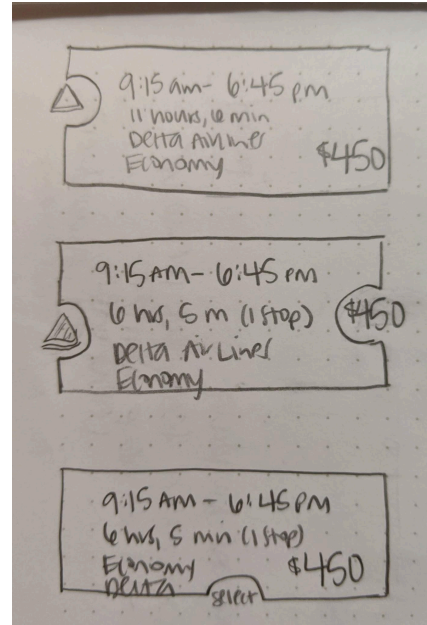 9:15 am - 6:45 pm
11 hours, 6 min
Delta Airlines
Economy
$450
9:15 AM - 6:45 PM
6 hrs, 5 m (1 stop)
$450
Delta Airlines
Economy
9:15 AM - 6:45 PM
6 hrs, 5 min (1 stop)
Economy
$450
DELTA
SELECT